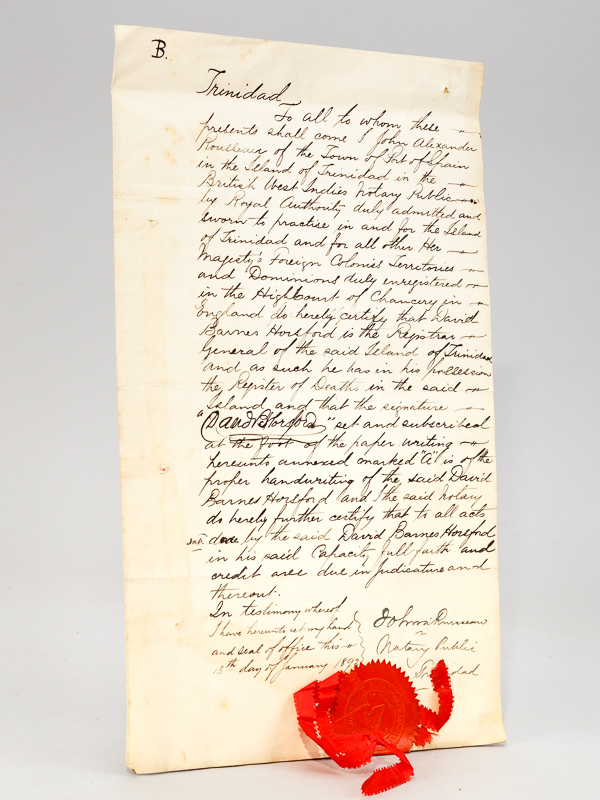 B.
Trinidad
To all to whom these
presents shall come I John Alexander
Rousseau of the Town of Port of Spain
in the Island of Trinidad in the
British West Indies Notary Public
by Royal Authority duly admitted and
sworn to practise in and for the Island
of Trinidad and for all other Her
Majesty's Foreign Colonies Territories
and Dominions duly enregistered
in the High Court of Chancery in
England do hereby certify that David
Barnes Horsford is the Registrar
General of the said Island of Trinidad
and as such he has in his possession
the Register of Deaths in the said
Island and that the signature
"David B Horsford" set and subscribed
at the foot of the paper writing
hereunto annexed marked "A" is of the
proper handwriting of the said David
Barnes Horsford and I the said Notary
do hereby further certify that to all acts
done by the said David Barnes Horsford
in his said Capacity full faith and
credit are due in Judicature and
thereout.
In testimony whereof
I have hereunto set my hand
and seal of office this
13th day of January
Notary Public
Trinidad